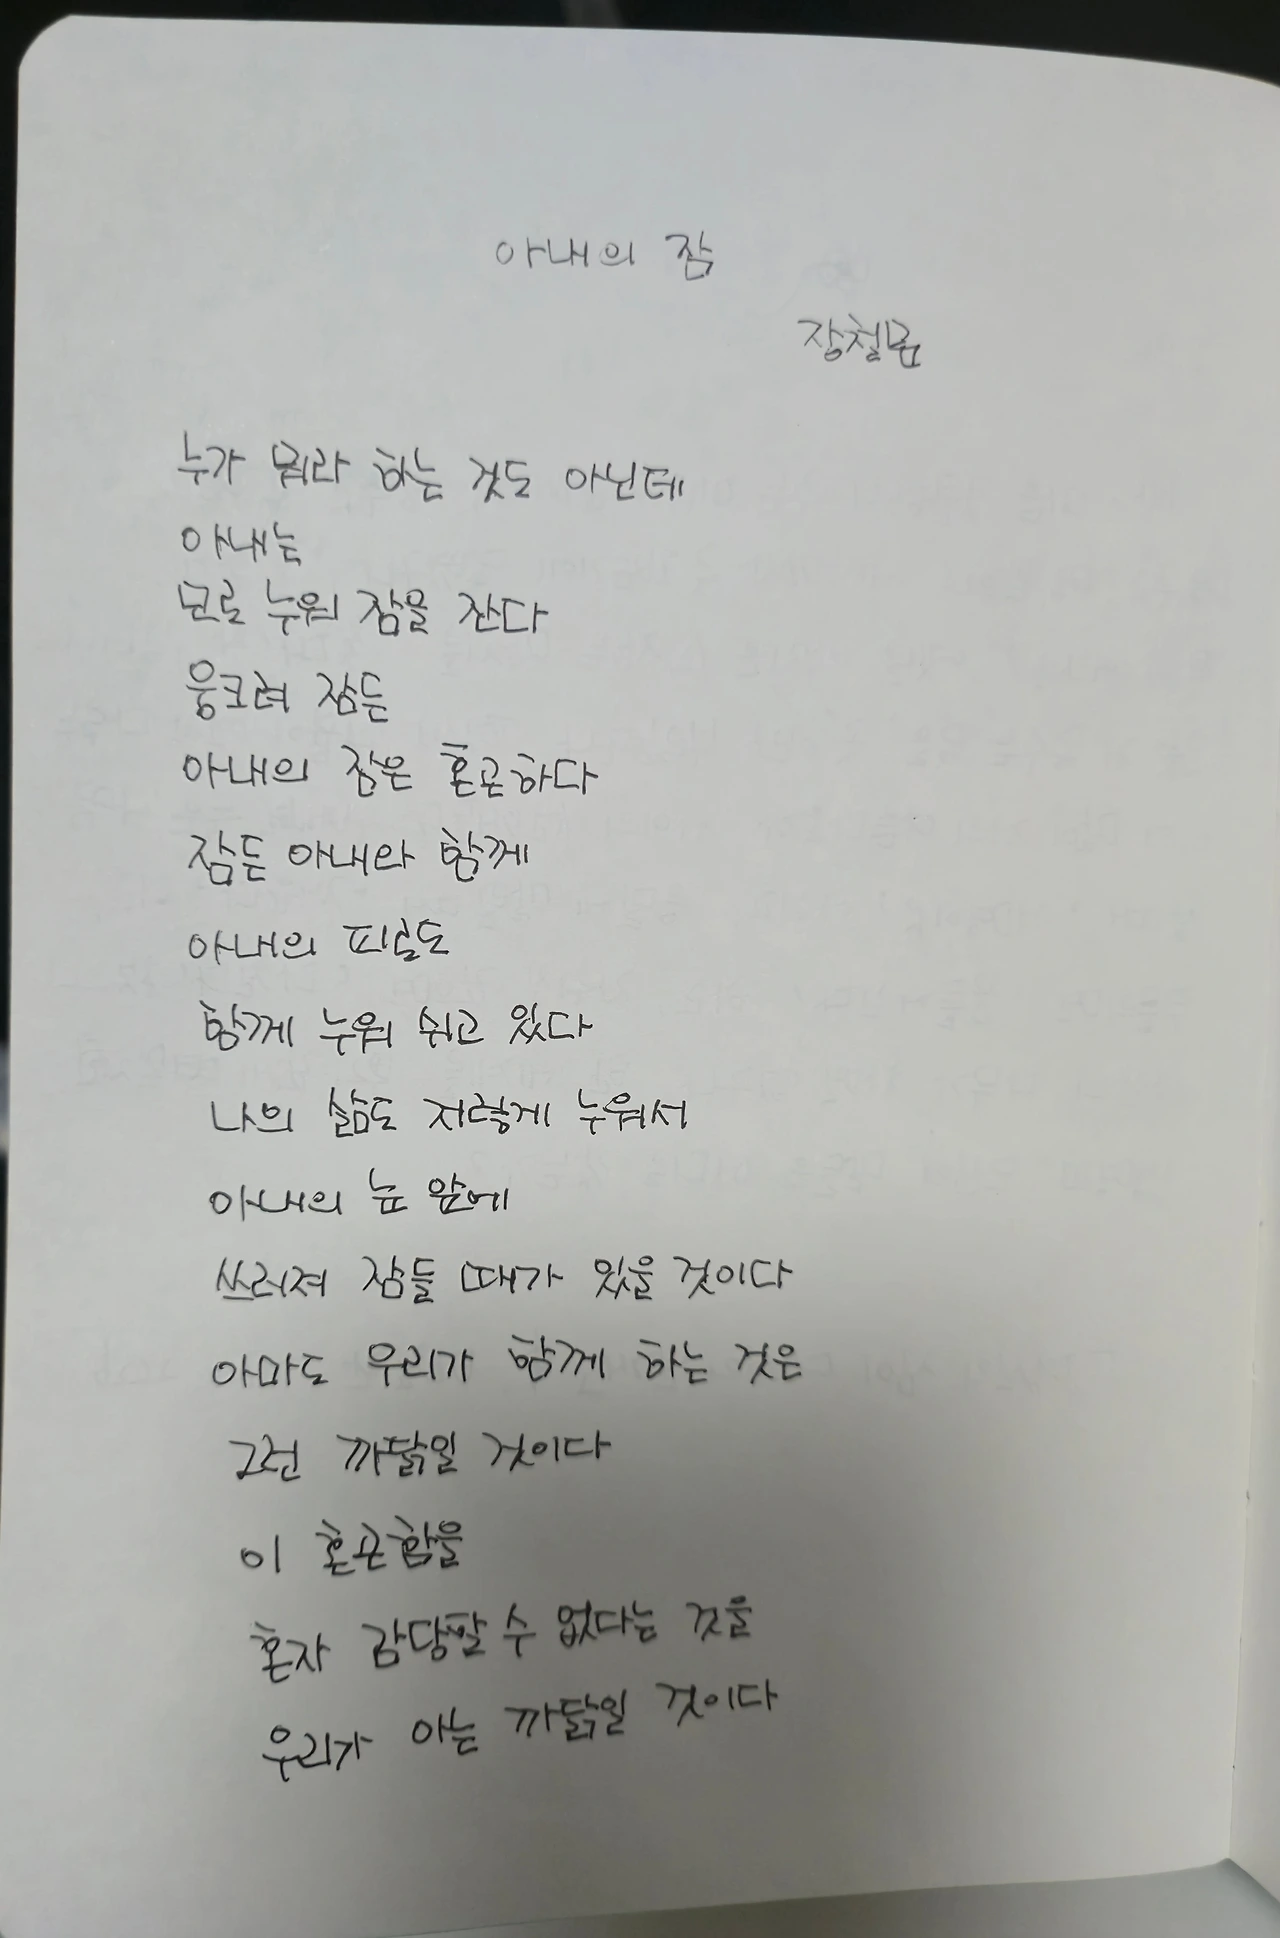 아내의 잠
장철문
누가 뭐라 하는 것도 아닌데
아내는
모로 누워 잠을 잔다
웅크려 잠든
아내의 잠은 혼곤하다
잠든 아내와 함께
아내의 피로도
함께 누워 쉬고 있다
나의 삶도 저렇게 누워서
아내의 눈 앞에
쓰러져 잠들 때가 있을 것이다
아마도 우리가 함께 하는 것은
그런 까닭일 것이다
이 혼곤함을
혼자 감당할 수 없다는 것을
우리가 아는 까닭일 것이다